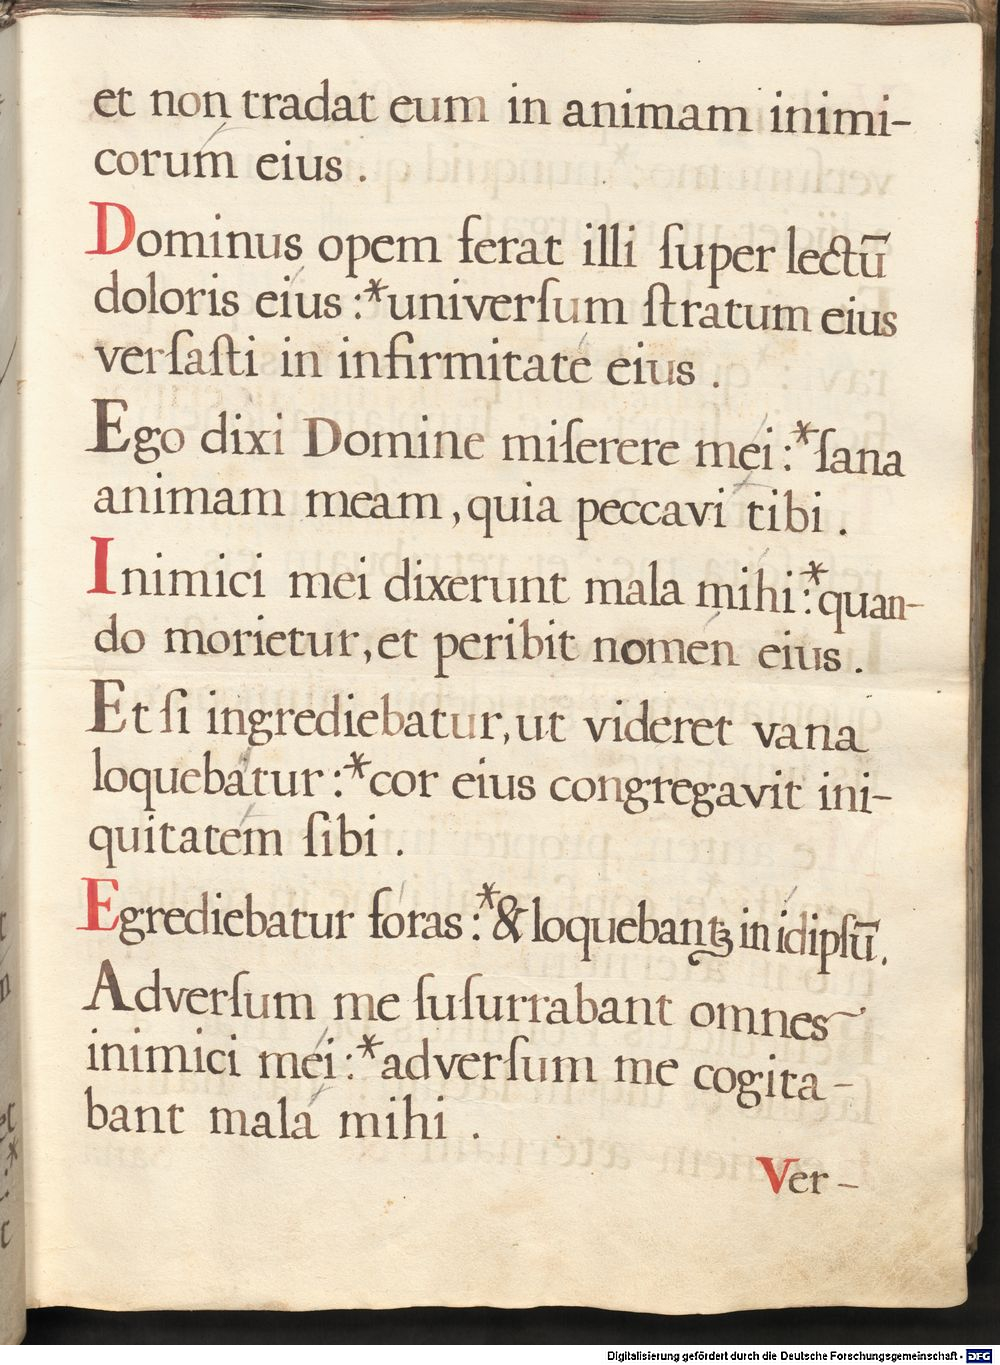 et non tradat eum in animam inimi-
corum eius .
Dominus opem ferat illi ſuper lectū
doloris eius :*univerſum ſtratum eius
verſaſti in infirmitate eius .
Ego dixi Domine miſerere mei :*ſana
animam meam , quia peccavi tibi .
Inimici mei dixerunt mala mihi :*quan-
do morietur, et peribit nomen eius .
Et ſi ingrediebatur, ut videret vana
loquebatur :*cor eius congregavit ini-
quitatem ſibi .
Egrediebatur foras :*& loquebantꝫ in idipſū.
Adverſum me ſuſurrabant omnes
inimici mei :*adverſum me cogita-
bant mala mihi .
Ver-
Digitalisierung gefördert durch die Deutsche Forschungsgemeinschaft - DFG